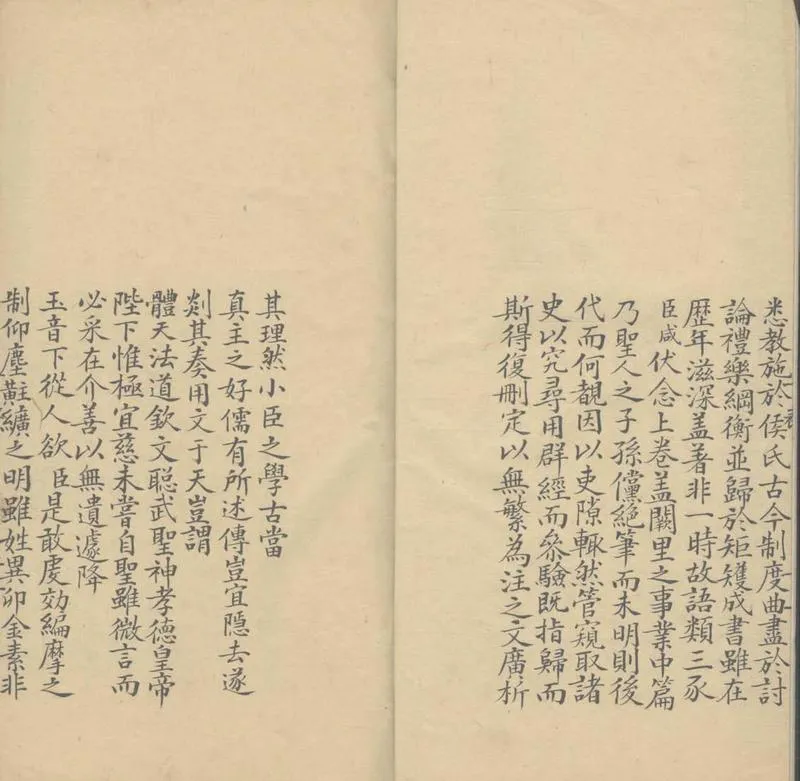 悉教施於侯氏古今制度曲盡於討
論禮樂綱衡並歸於矩矱成書雖在
歷年滋深盖著非一時故語類三豕
臣咸伏念上卷盖闕里之事業中篇
乃聖人之子孫儻絶筆而未明則後
代而何覩因以吏隙輒然管窺取諸
史以究尋用群經而叅驗既指歸而
斯得復刪定以無繁為注之文廣析
其理然小臣之學古當
真主之好儒有所述傳豈宜隐去遂
剡其奏用文于天豈謂
體天法道欽文聡武聖神孝德皇帝
陛下惟極宜慈未嘗自聖雖微言而
必采在介善以無遺遽降
玉音下從人欲臣是敢虔効編摩之
制仰塵黈纊之明雖姓異卯金素非